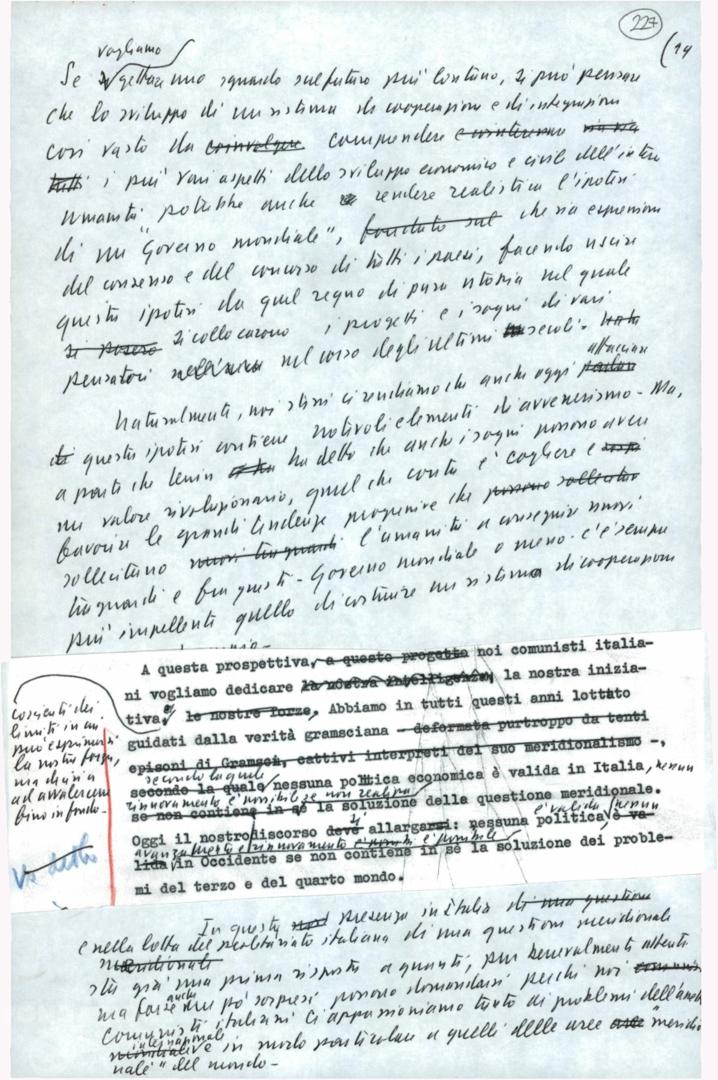 227
(14
vogliamo
Se gettare uno sguardo sul futuro più lontano, si può pensare
che lo sviluppo di un sistema di cooperazione e di integrazione
così vasto da coinvolgere comprendere
tutti i più vari aspetti dello sviluppo economico e civile dell'intera
umanità potrebbe anche rendere realistica l'ipotesi
di un "Governo mondiale", fondato sul che sia espressione
del consenso e del concorso di tutti i paesi, facendo uscire
questa ipotesi da quel regno di pura utopia nel quale
si posero si collocarono i progetti e i sogni di vari
pensatori nel corso degli ultimi secoli.
affacciare
Naturalmente, noi stessi ci rendiamo che anche oggi parlare
di questa ipotesi contiene notevoli elementi di avvenirismo. Ma,
a parte che Lenin ha detto che anche i sogni possono avere
un valore rivoluzionario, quel che conta è cogliere e
favorire le grandi tendenze progressive che possono sollecitare
sollecitano nuovi traguardi l'umanità a conseguire nuovi
traguardi e fra questi - Governo mondiale o meno - c'è sempre
più impellente quello di costruire un sistema di cooperazione
A questa prospettiva, a questo progetto noi comunisti italia-
ni vogliamo dedicare la nostra intelligenza, la nostra inizia-
tiva, e le nostre forze, Abbiamo in tutti questi anni lottato
guidati dalla verità gramsciana - deformata purtroppo da tenti
episoni di Gramsci, cattivi interpreti del suo meridionalismo -,
secondo la quale
secondo la quale nessuna politica economica è valida in Italia, nessun
rinnovamento è possibile se non realizza
se non contiene in sé la soluzione della questione meridionale.
Oggi il nostro discorso deve allargarsi: nessuna politica, è va-
si è valida, nessun
avanzamento e rinnovamento è possibile
lida in Occidente se non contiene in sé la soluzione dei proble-
mi del terzo e del quarto mondo.
coscienti dei
limiti in cui
può esprimersi
la nostra forza,
ma decisi
ad avvalercene
fino in fondo.
In questa presenza in Italia di una questione
e nella lotta del proletariato italiano di una questione meridionale
meridionale
sta già una prima risposta a quanti, pur benevolmente attenti
ma forse anche un po' sorpresi, possono domandarsi perché noi comunisti
comunisti italiani ci appassioniamo tanto ai problemi
internazionali
mondiali e in modo particolare a quelli delle aree "meridio
nali" del mondo.